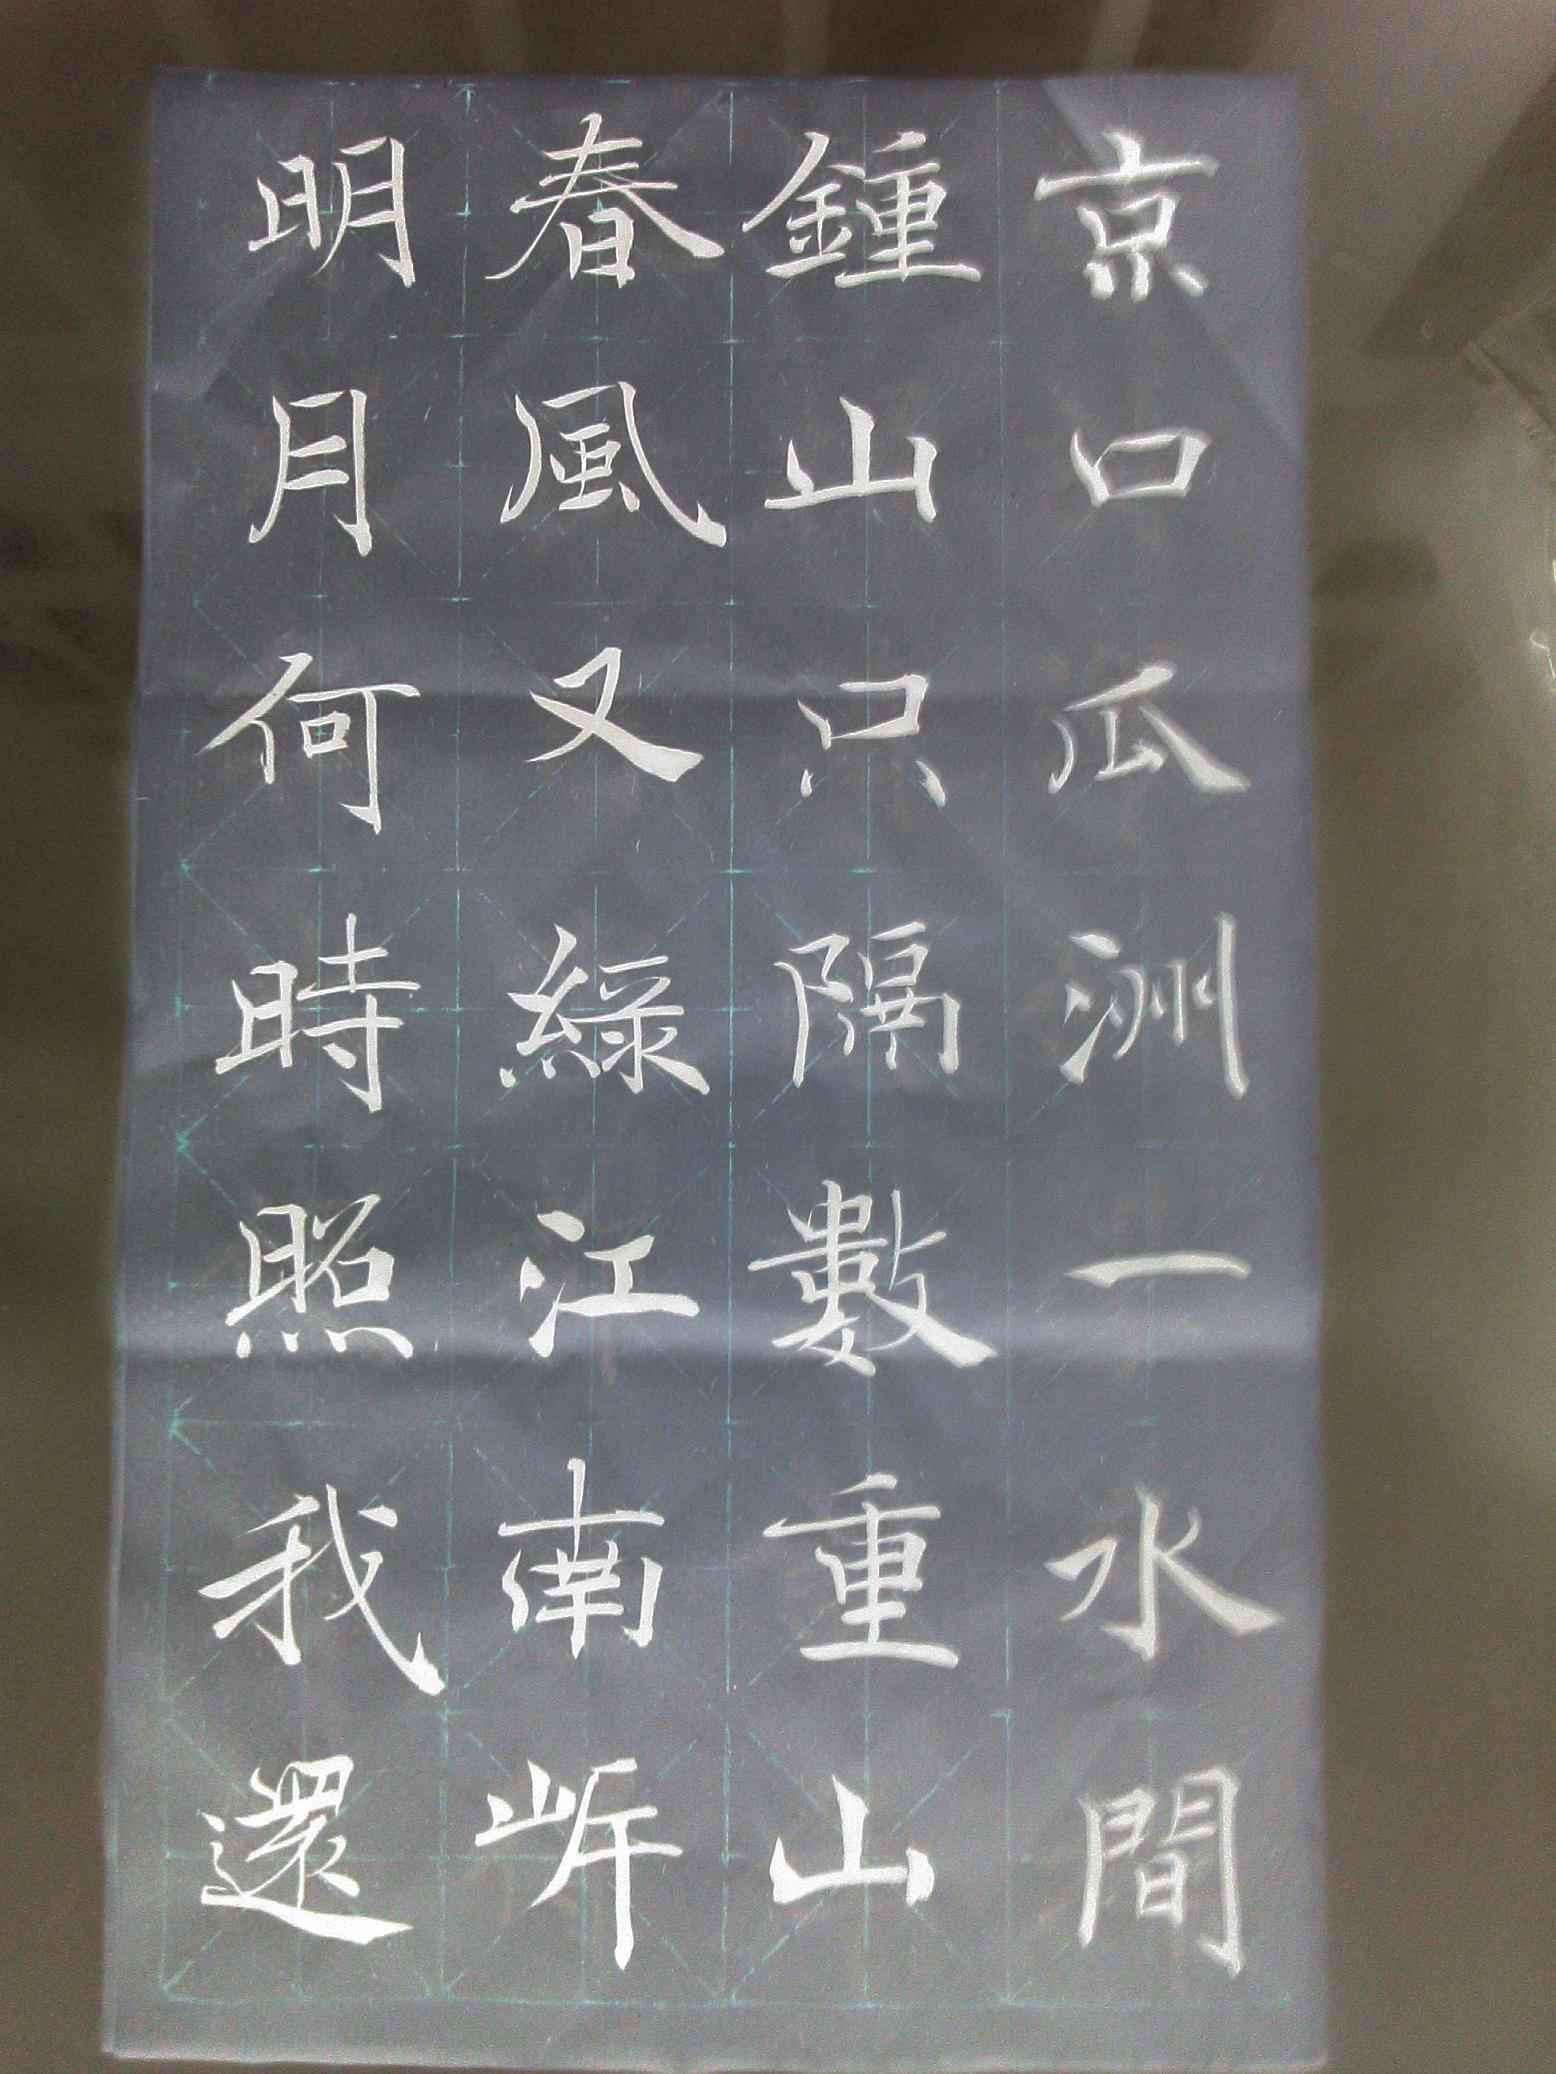 京口瓜洲一水間
鍾山只隔數重山
春風又綠江南岸
明月何時照我還